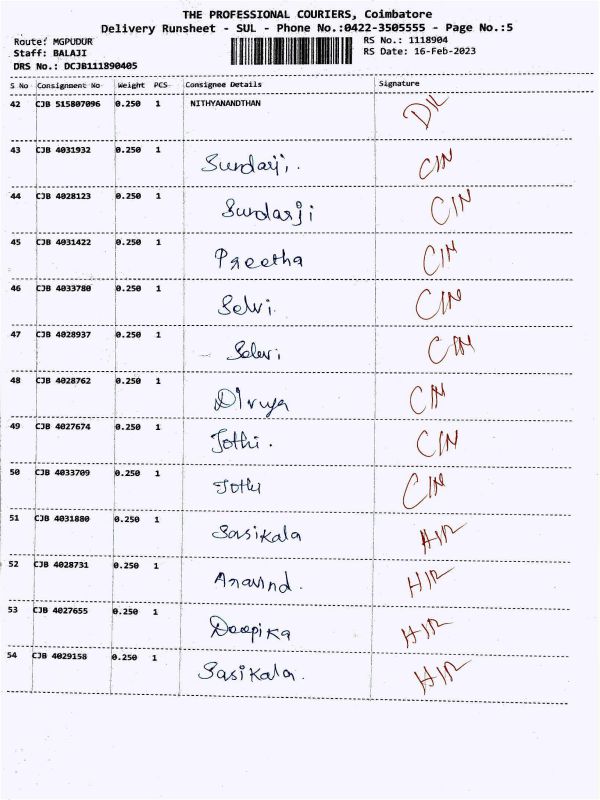 THE PROFESSIONAL COURIERS, Coimbatore
Delivery Runsheet - SUL - Phone No.:0422-3505555 - Page No.:5
Route: MGPUDUR RS No.: 1118904
Staff: BALAJI RS Date: 16-Feb-2023
DRS No.: DCJB111890405
S No Consignment No Weight PCS Consignee Details Signature
42 CJB 515807096 0.250 1 NITHYANANDTHAN
43 CJB 4031932 0.250 1 Sundarji. CIN
44 CJB 4028123 0.250 1 Sundarji CIN
45 CJB 4031422 0.250 1 Preetha CIN
46 CJB 4033780 0.250 1 Selvi. CIN
47 CJB 4028937 0.250 1 Selvi CIN
48 CJB 4028762 0.250 1 Divya CIN
49 CJB 4027674 0.250 1 Jothi. CIN
50 CJB 4033709 0.250 1 Jothi CIN
51 CJB 4031880 0.250 1 Sasikala HIR
52 CJB 4028731 0.250 1 Aravind. HIR
53 CJB 4027655 0.250 1 Deepika HIR
54 CJB 4029158 0.250 1 Sasikala. HIR